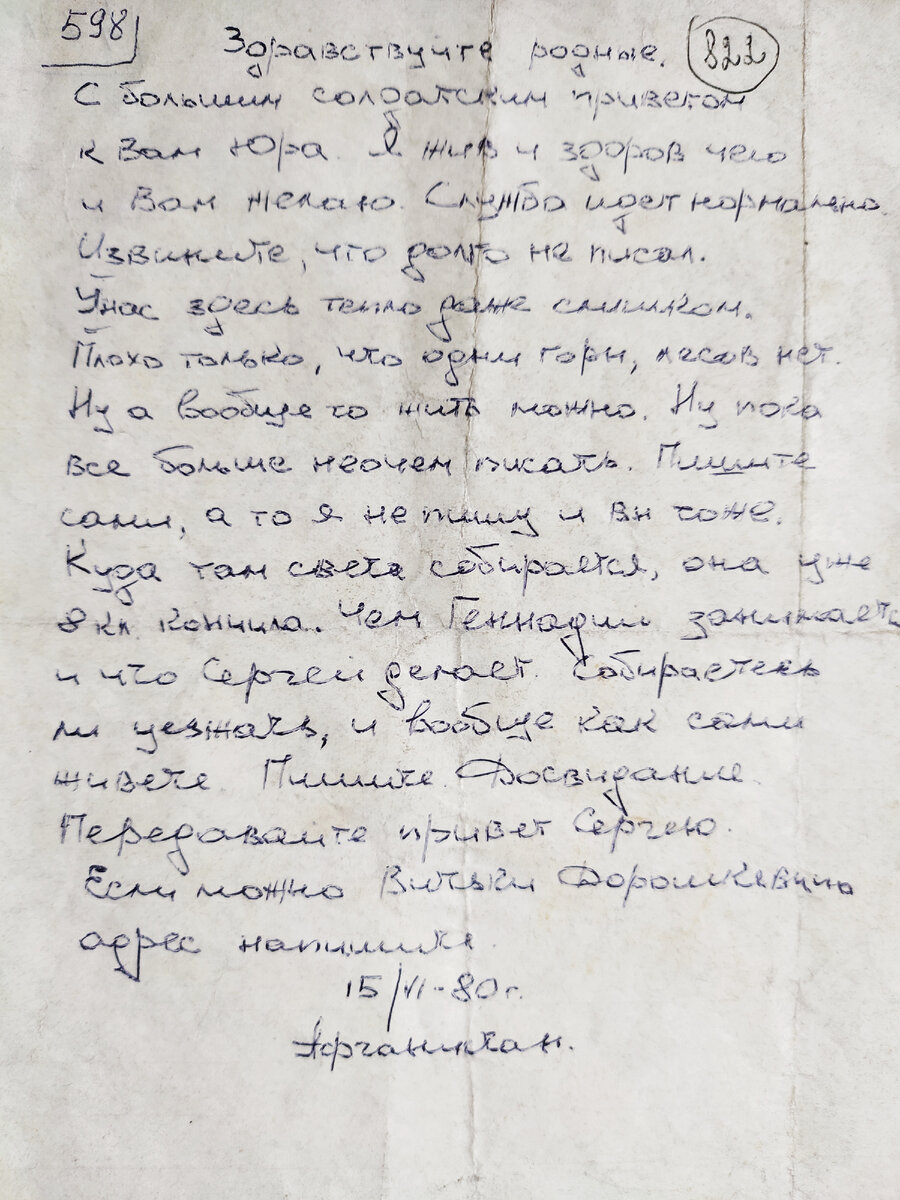 598
Здравствуите родные. 822
С большим солдатским приветом
к Вам Юра. Я жив и здоров чего
и Вам желаю. Служба идет нормально.
Извините, что долго не писал.
У нас здесь тепло даже слишком.
Плохо только, что одни горы, лесов нет.
Ну а вообще то жить можно. Ну пока
все больше неочем писать. Пишите
сами, а то я не пишу и вы тоже.
Куда там света собирается, она уже
8 кл. кончила. Чем Геннадии занимаеться
и что Сергеи делает. Собираетесь
ли уезжать, и вообще как сами
живете. Пишите. Досвидание.
Передаваите привет Сергею.
Если можно Витьки Дорошкевича
адрес напишите.
15/VI-80г.
Афганистан.